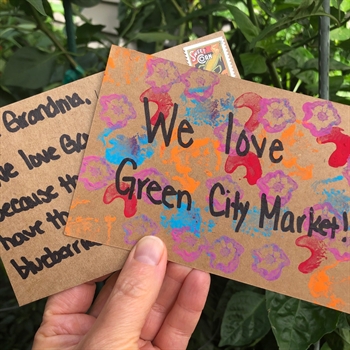 Grandma,
we love GC
because th
have th
blueberri
We love
Green City Market!